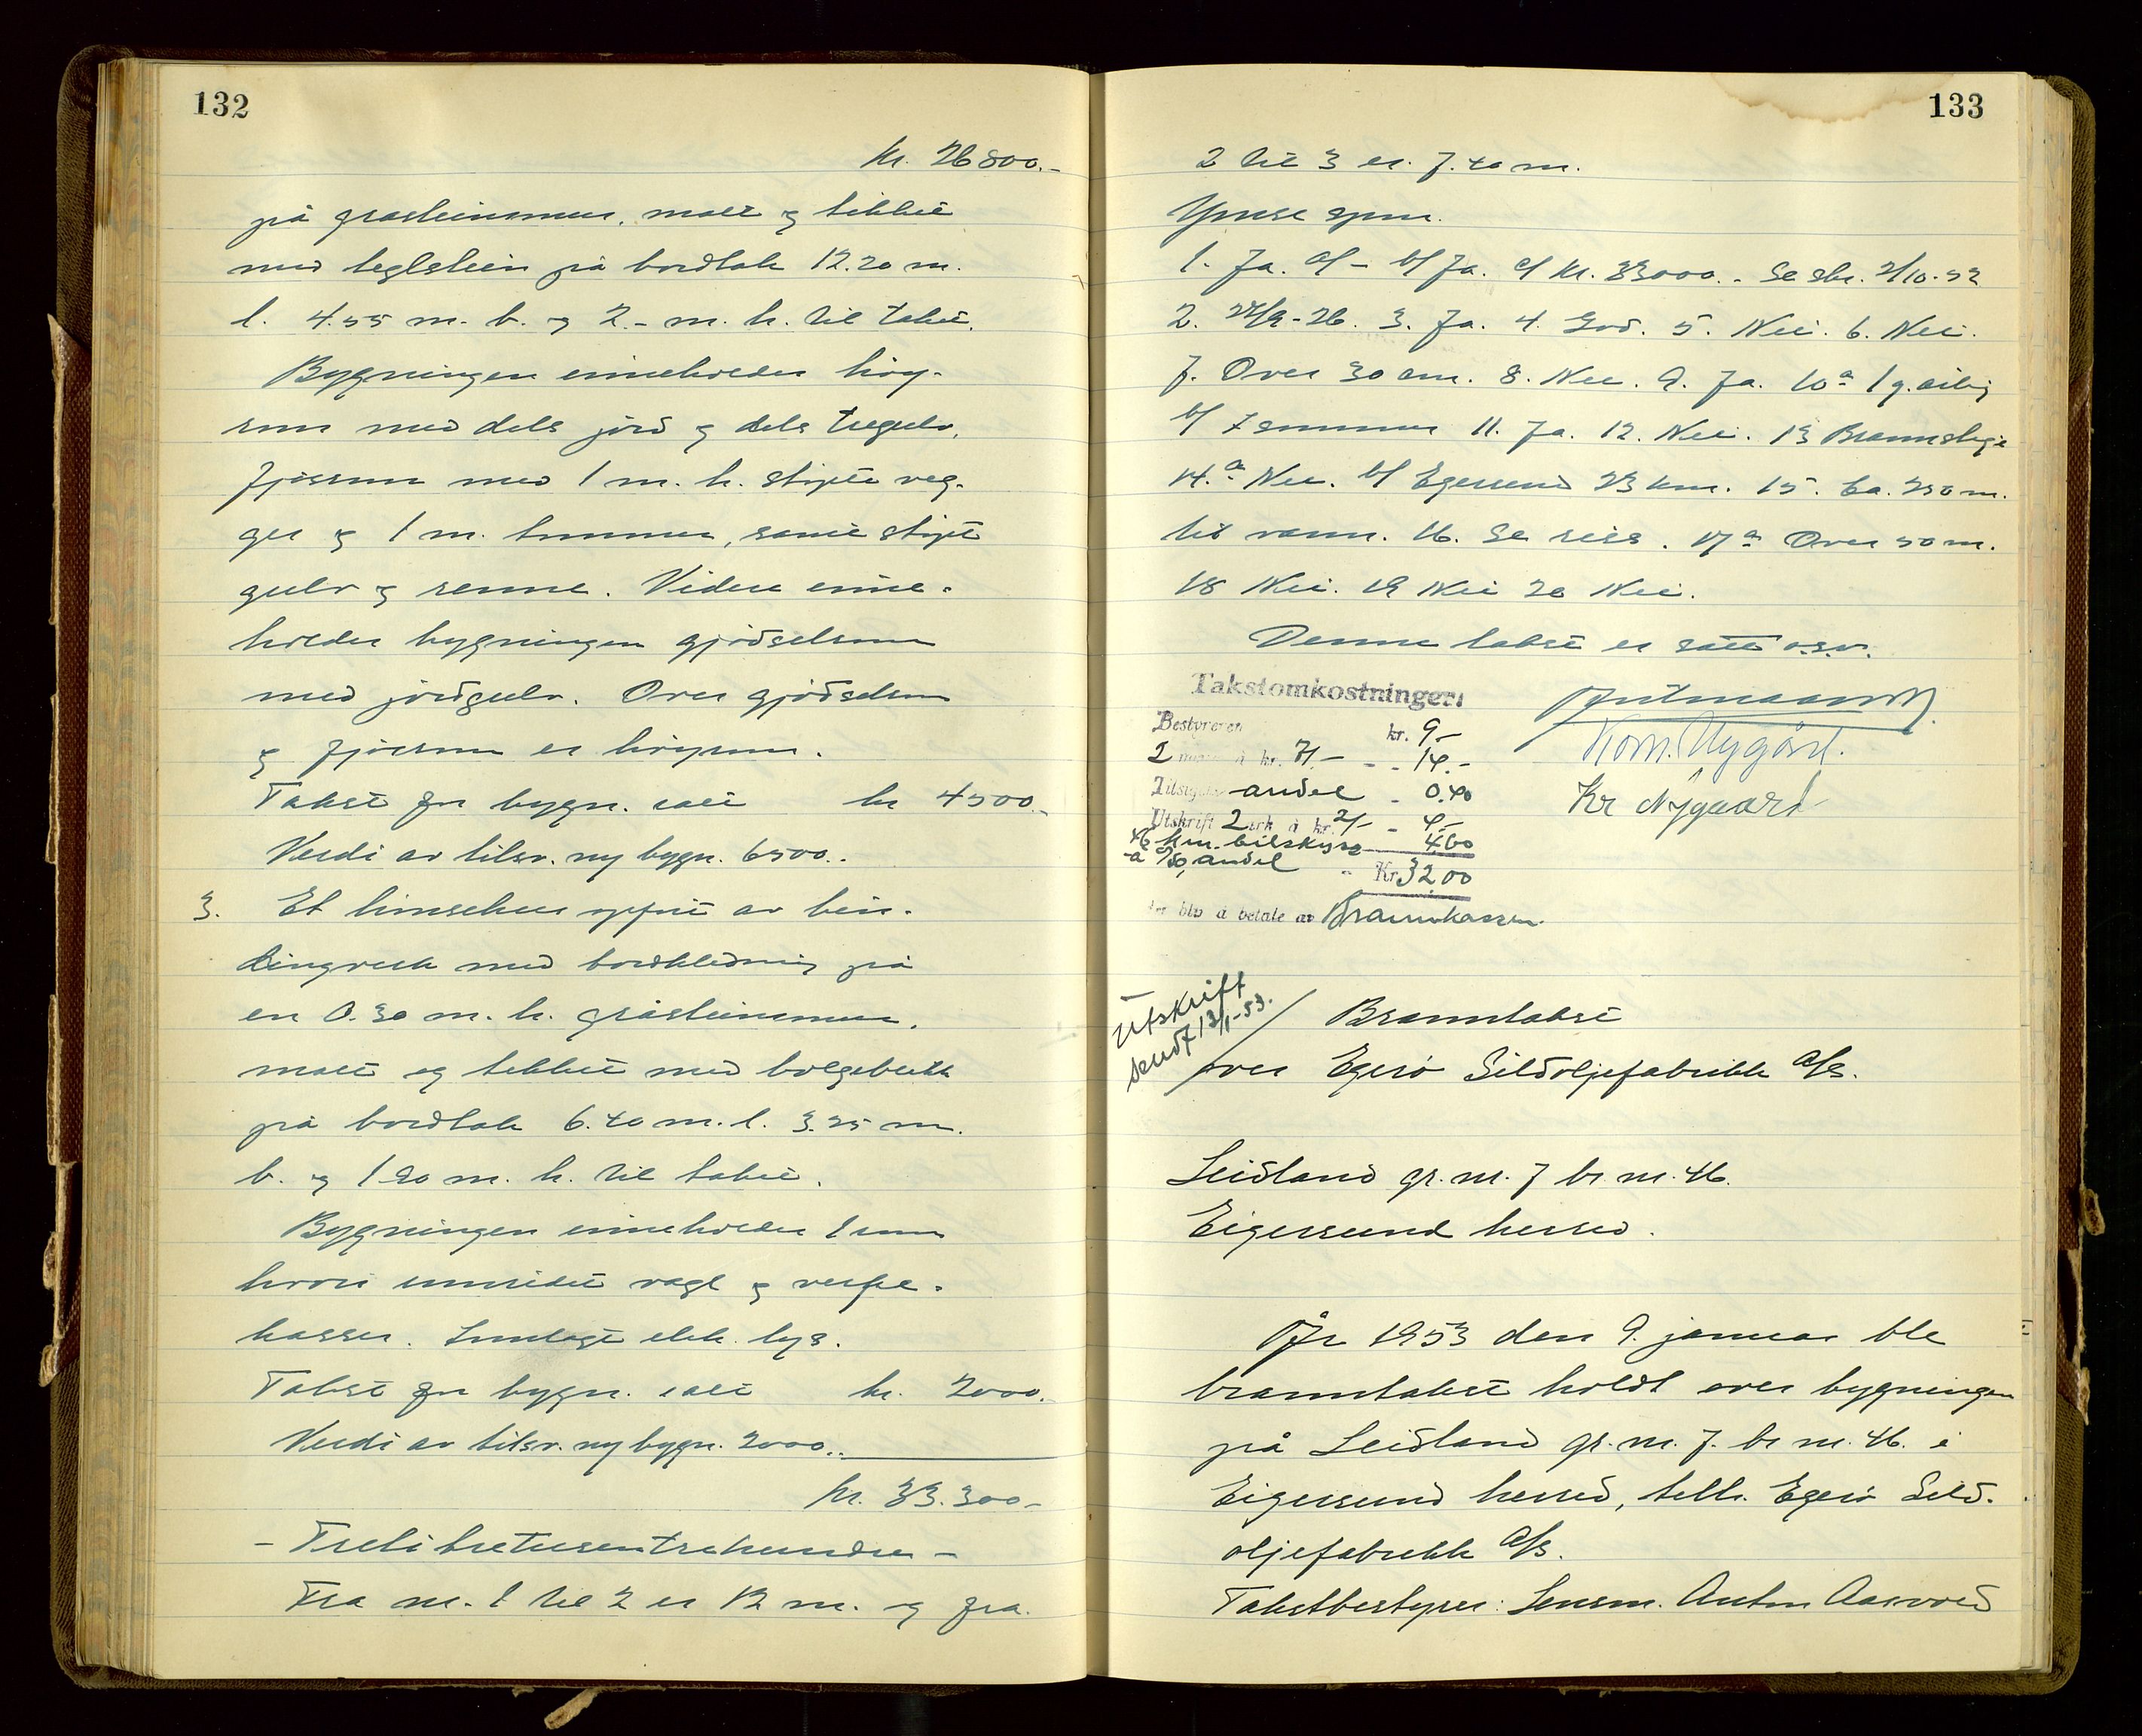 132
kr. 26800.-
på gråsteinsmur, malt og tekket
med teglstein på bordtak 12.20 m.
l. 4.55 m. b. og 2.- m. h. til taket.
Bygningen inneholder høy-
rum med dels jord og dels tregulv.
Fjøsrum med 1 m. h. støpte veg-
ger og 1 m. tømmer, samt støpt
gulv og renne. Videre inne-
holder bygningen gjødselrum
med jordgulv. Over gjødselrum
og fjøsrum er høyrum.
Takst for bygn. satt kr 4500.-
Verdi av tilsv. ny bygn. 6500.-
3. Et hønsehus oppført av bin-
dingverk med bordkledning på
en 0.30 m. h. gråsteinsmur,
malt og tekket med bølgeblikk
på bordtak 6.40 m. l. 3.25 m.
b. og 1.90 m. h. til taket.
Bygningen inneholder 1 rum
hvori innredet vagl og verpe-
kasser. Innlagt elek. lys.
Takst for bygn. satt kr. 2000.-
Verdi av tilsv. ny bygn. 2000.-
kr. 33.300-
- Trettitretusentrehundre -
Fra nr. 1 til 2 er 12 m. og fra
133
2 til 3 er 7.40 m.
Ymse spm.
1. Ja. a/ - b/ Ja. c/ kr. 33000.- Se skr. 2/10-52
2. 24/9-26. 3. Ja. 4. God. 5. Nei. 6. Nei.
7. Over 30 cm. 8. Nei. 9. Ja. 10 a 1 g. årlig
b/ I sommer 11. Ja. 12. Nei. 13 Brannstige
14. a Nei. b/ Egersund 23 km. 15. Ca. 250 m.
til vann. 16. Se riss. 17 a Over 50 m.
18 Nei. 19 Nei 20 Nei.
Denne takst er satt o.s.v.
Takstomkostninger:
Bestyreren kr. 9-
2 à kr. 7/- - 14.-
andel - 0.40
Utskrift 2 ark à kr. 2/- - 4-
46 km. bilskyss 4.60
a andel
Kr. 32.00
blir å betale av Brannkassen.
Korn. Nygård.
Kr Nygaard
Utskrift
sendt 13/1-53.
Branntakst
over Egerø Sildoljefabrikk A/S.
Leidland gr. nr. 7 br nr. 46.
Eigersund herred.
År 1953 den 9. januar ble
branntakst holdt over bygningen
på Leidland gr. nr. 7. br nr. 46. i
Eigersund herred, tilh. Egerø Sild-
oljefabrikk A/S.
Takstbestyrer: Lensm. Anton Aasvold